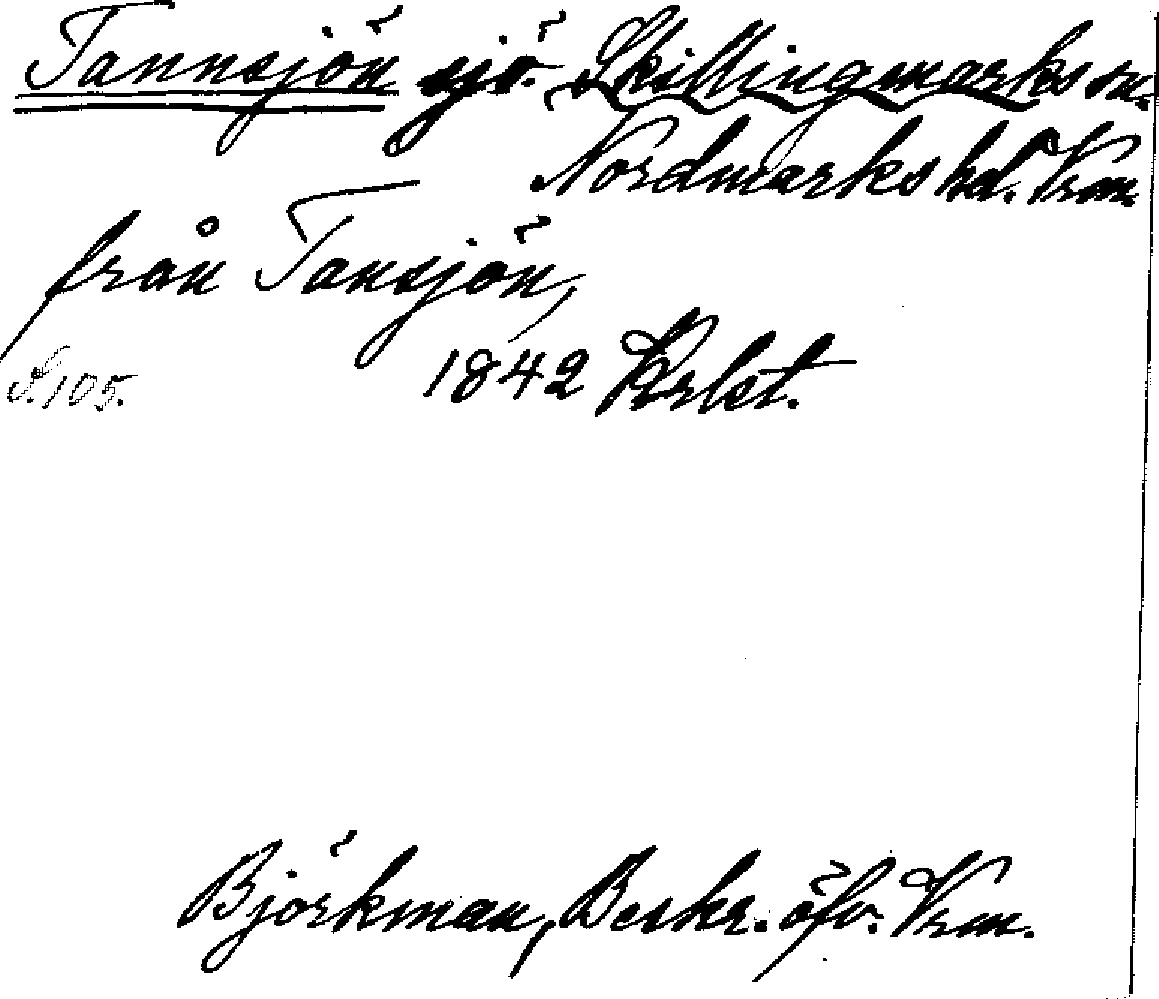 Tannsjön sjö. Skillingmarks sn.
Nordmarks hd. Vrm.
från Tansjön,
S.105. 1842 Krlst.
Björkman, Beskr. öfv. Vrm.